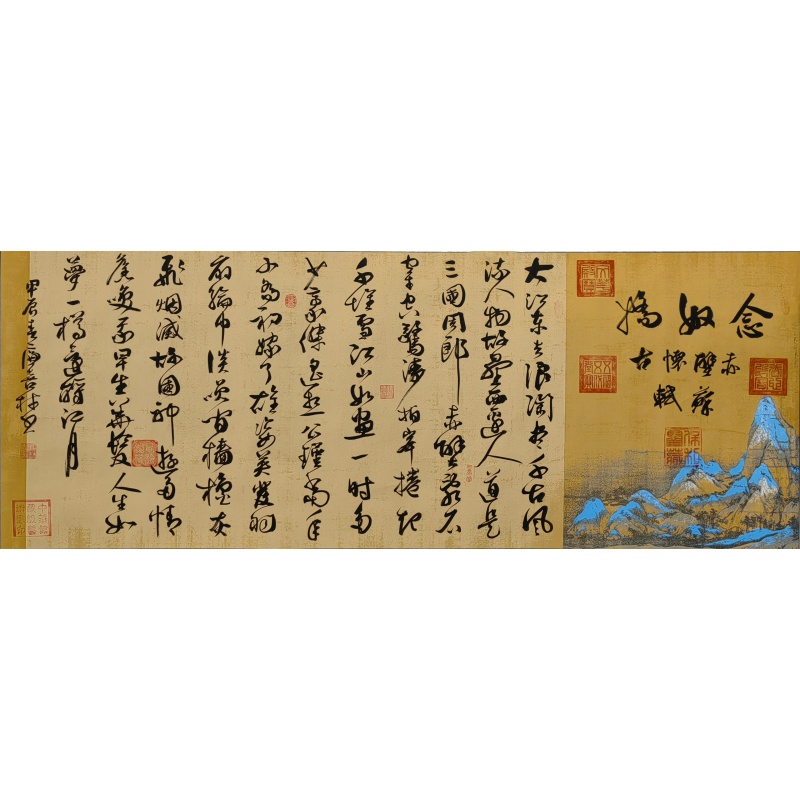 念奴嬌
赤壁懷古
蘇軾
大江東去浪淘盡千古風
流人物故壘西邊人道是
三國周郎赤壁亂石
穿空驚濤拍岸捲起
千堆雪江山如畫一時多
少豪傑遙想公瑾當年
小喬初嫁了雄姿英發羽
扇綸巾談笑間檣櫓灰
飛烟滅故國神遊多情
應笑我早生華髮人生如
夢一樽還酹江月
甲辰春